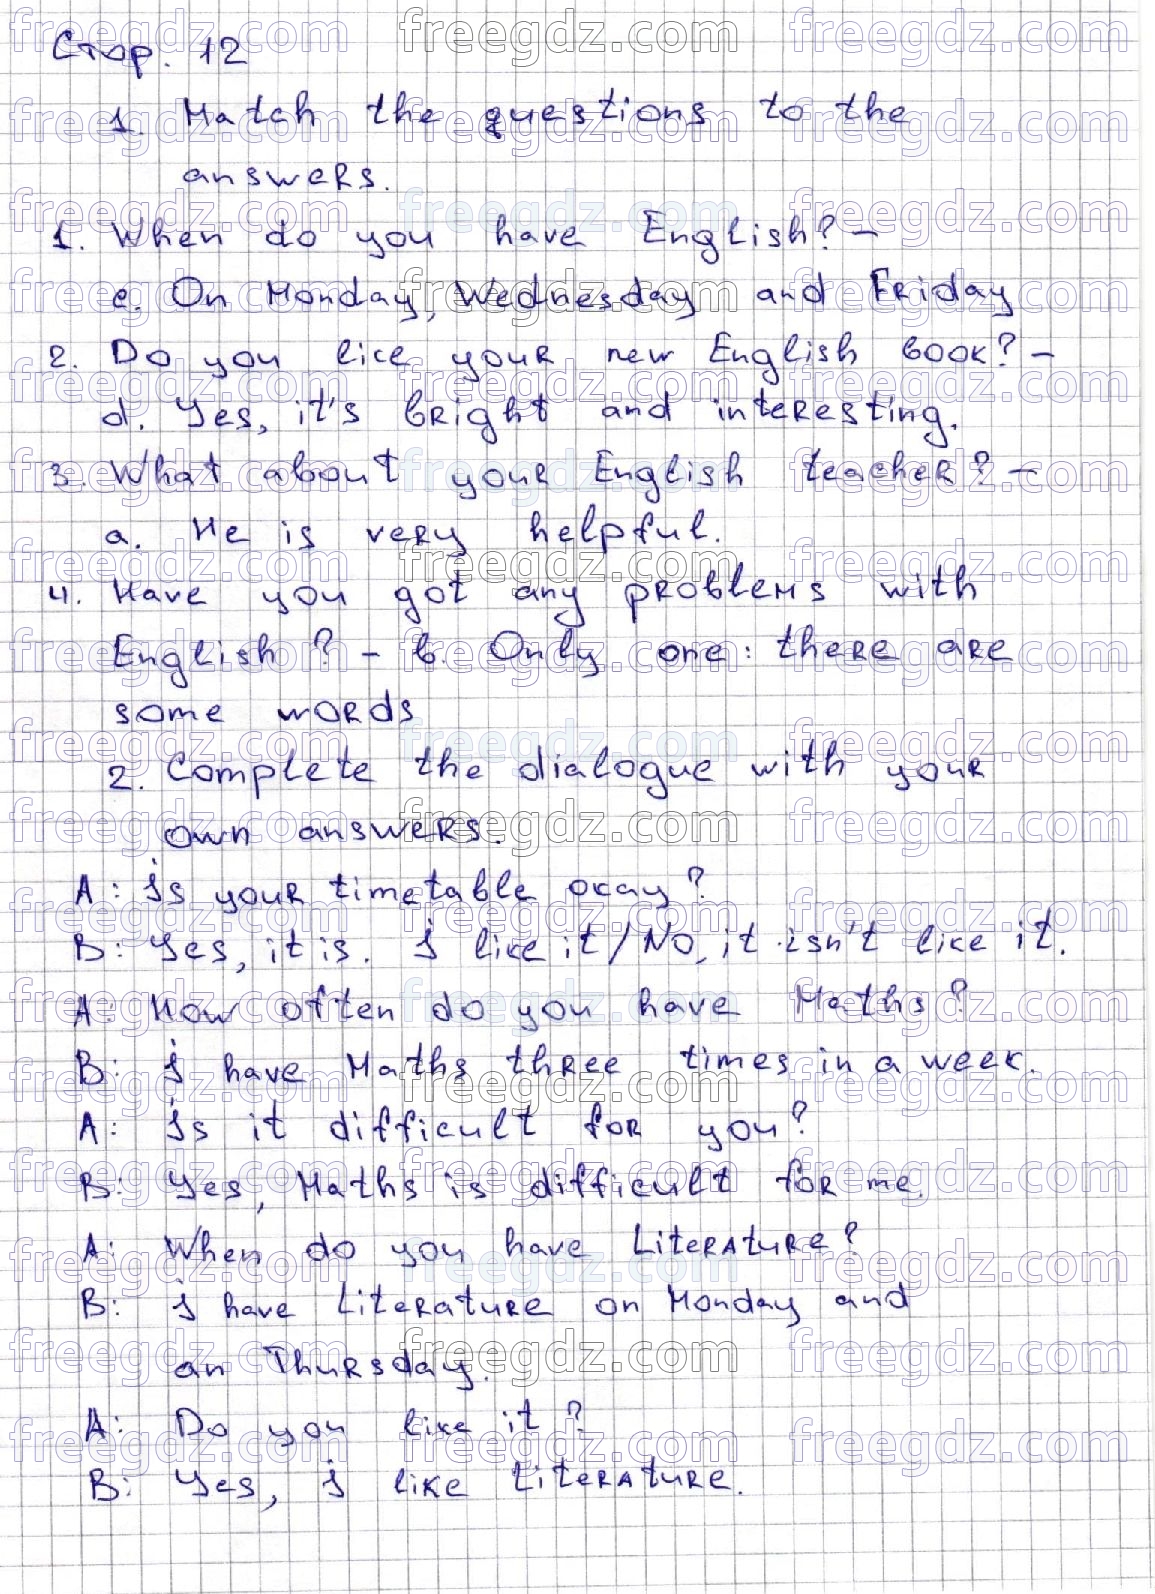 Стор. 12
1. Match the questions to the
answers.
1. When do you have English? –
e. On Monday, Wednesday and Friday
2. Do you lice your new English book? –
d. Yes, it's bright and interesting.
3. What about your English teacher? –
a. He is very helpful.
4. Have you got any problems with
English? – b. Only one: there are
some words
2. Complete the dialogue with your
own answers.
A: Is your timetable okay?
B: Yes, it is. I like it / No, it isn't like it.
A: How often do you have Maths?
B: I have Maths three times in a week.
A: Is it difficult for you?
B: Yes, Maths is difficult for me.
A: When do you have Literature?
B: I have Literature on Monday and
an Thursday.
A: Do you like it?
B: Yes, I like Literature.
freegdz.com